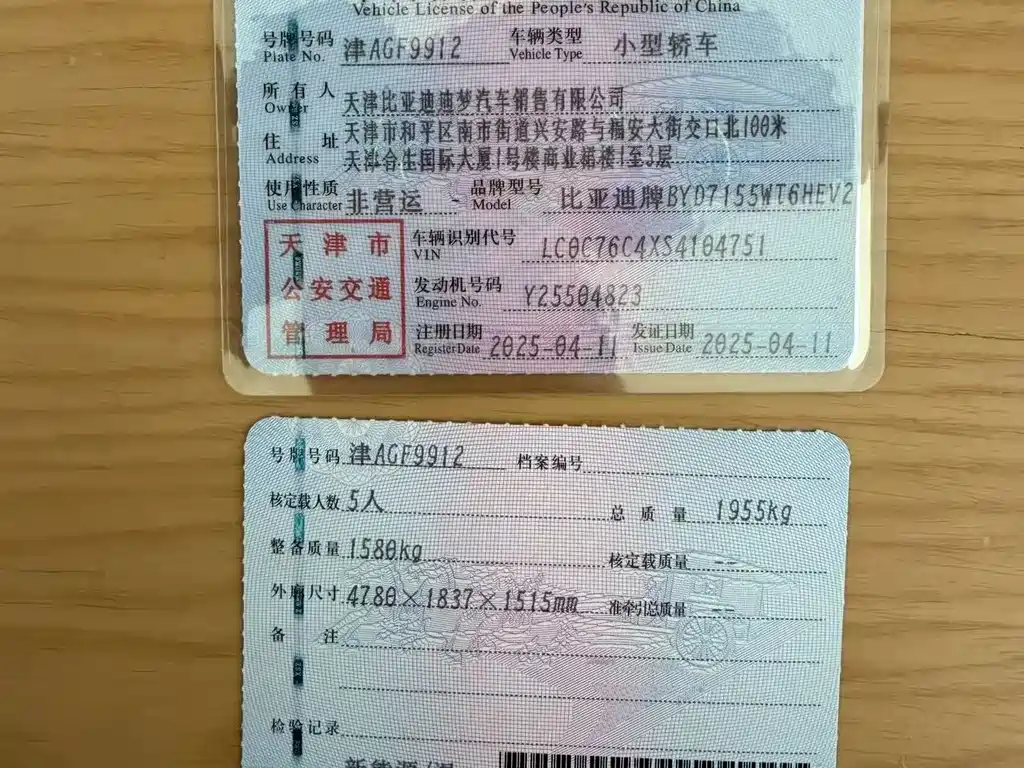 Vehicle License of the People's Republic of China
号牌号码 津AGF9912 车辆类型 小型轿车
Plate No. Vehicle Type
所有人 天津比亚迪迪梦汽车销售有限公司
Owner
住址 天津市和平区南市街道兴安路与福安大街交口北100米
Address 天津合生国际大厦1号楼商业裙楼1至3层
使用性质 非营运 - 品牌型号 比亚迪牌BYD7155WT6HEV2
Use Character Model
天津市
公安交通
管理局
车辆识别代号 LC0C76C4XS4104751
VIN
发动机号码 Y25504823
Engine No.
注册日期 2025-04-11 发证日期 2025-04-11
Register Date Issue Date
号牌号码 津AGF9912 档案编号
核定载人数 5人 总质量 1955kg
整备质量 1580kg 核定载质量 --
外廓尺寸 4780×1837×1515mm 准牵引总质量 --
备注
检验记录